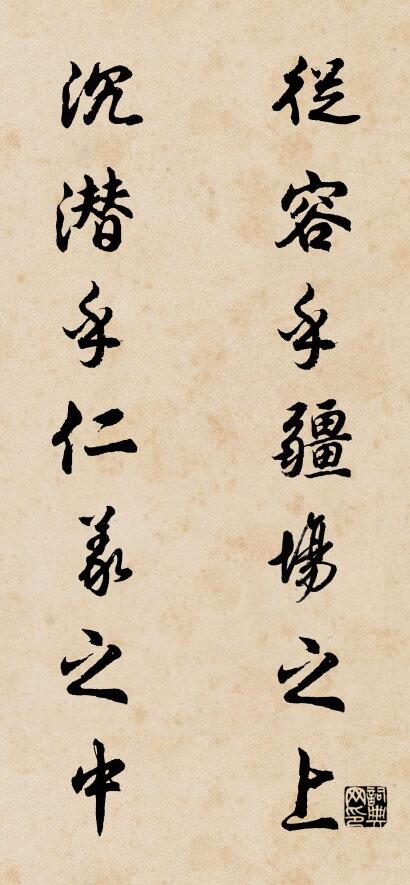 從容乎疆場之上
沉潜乎仁義之中
詞典網印